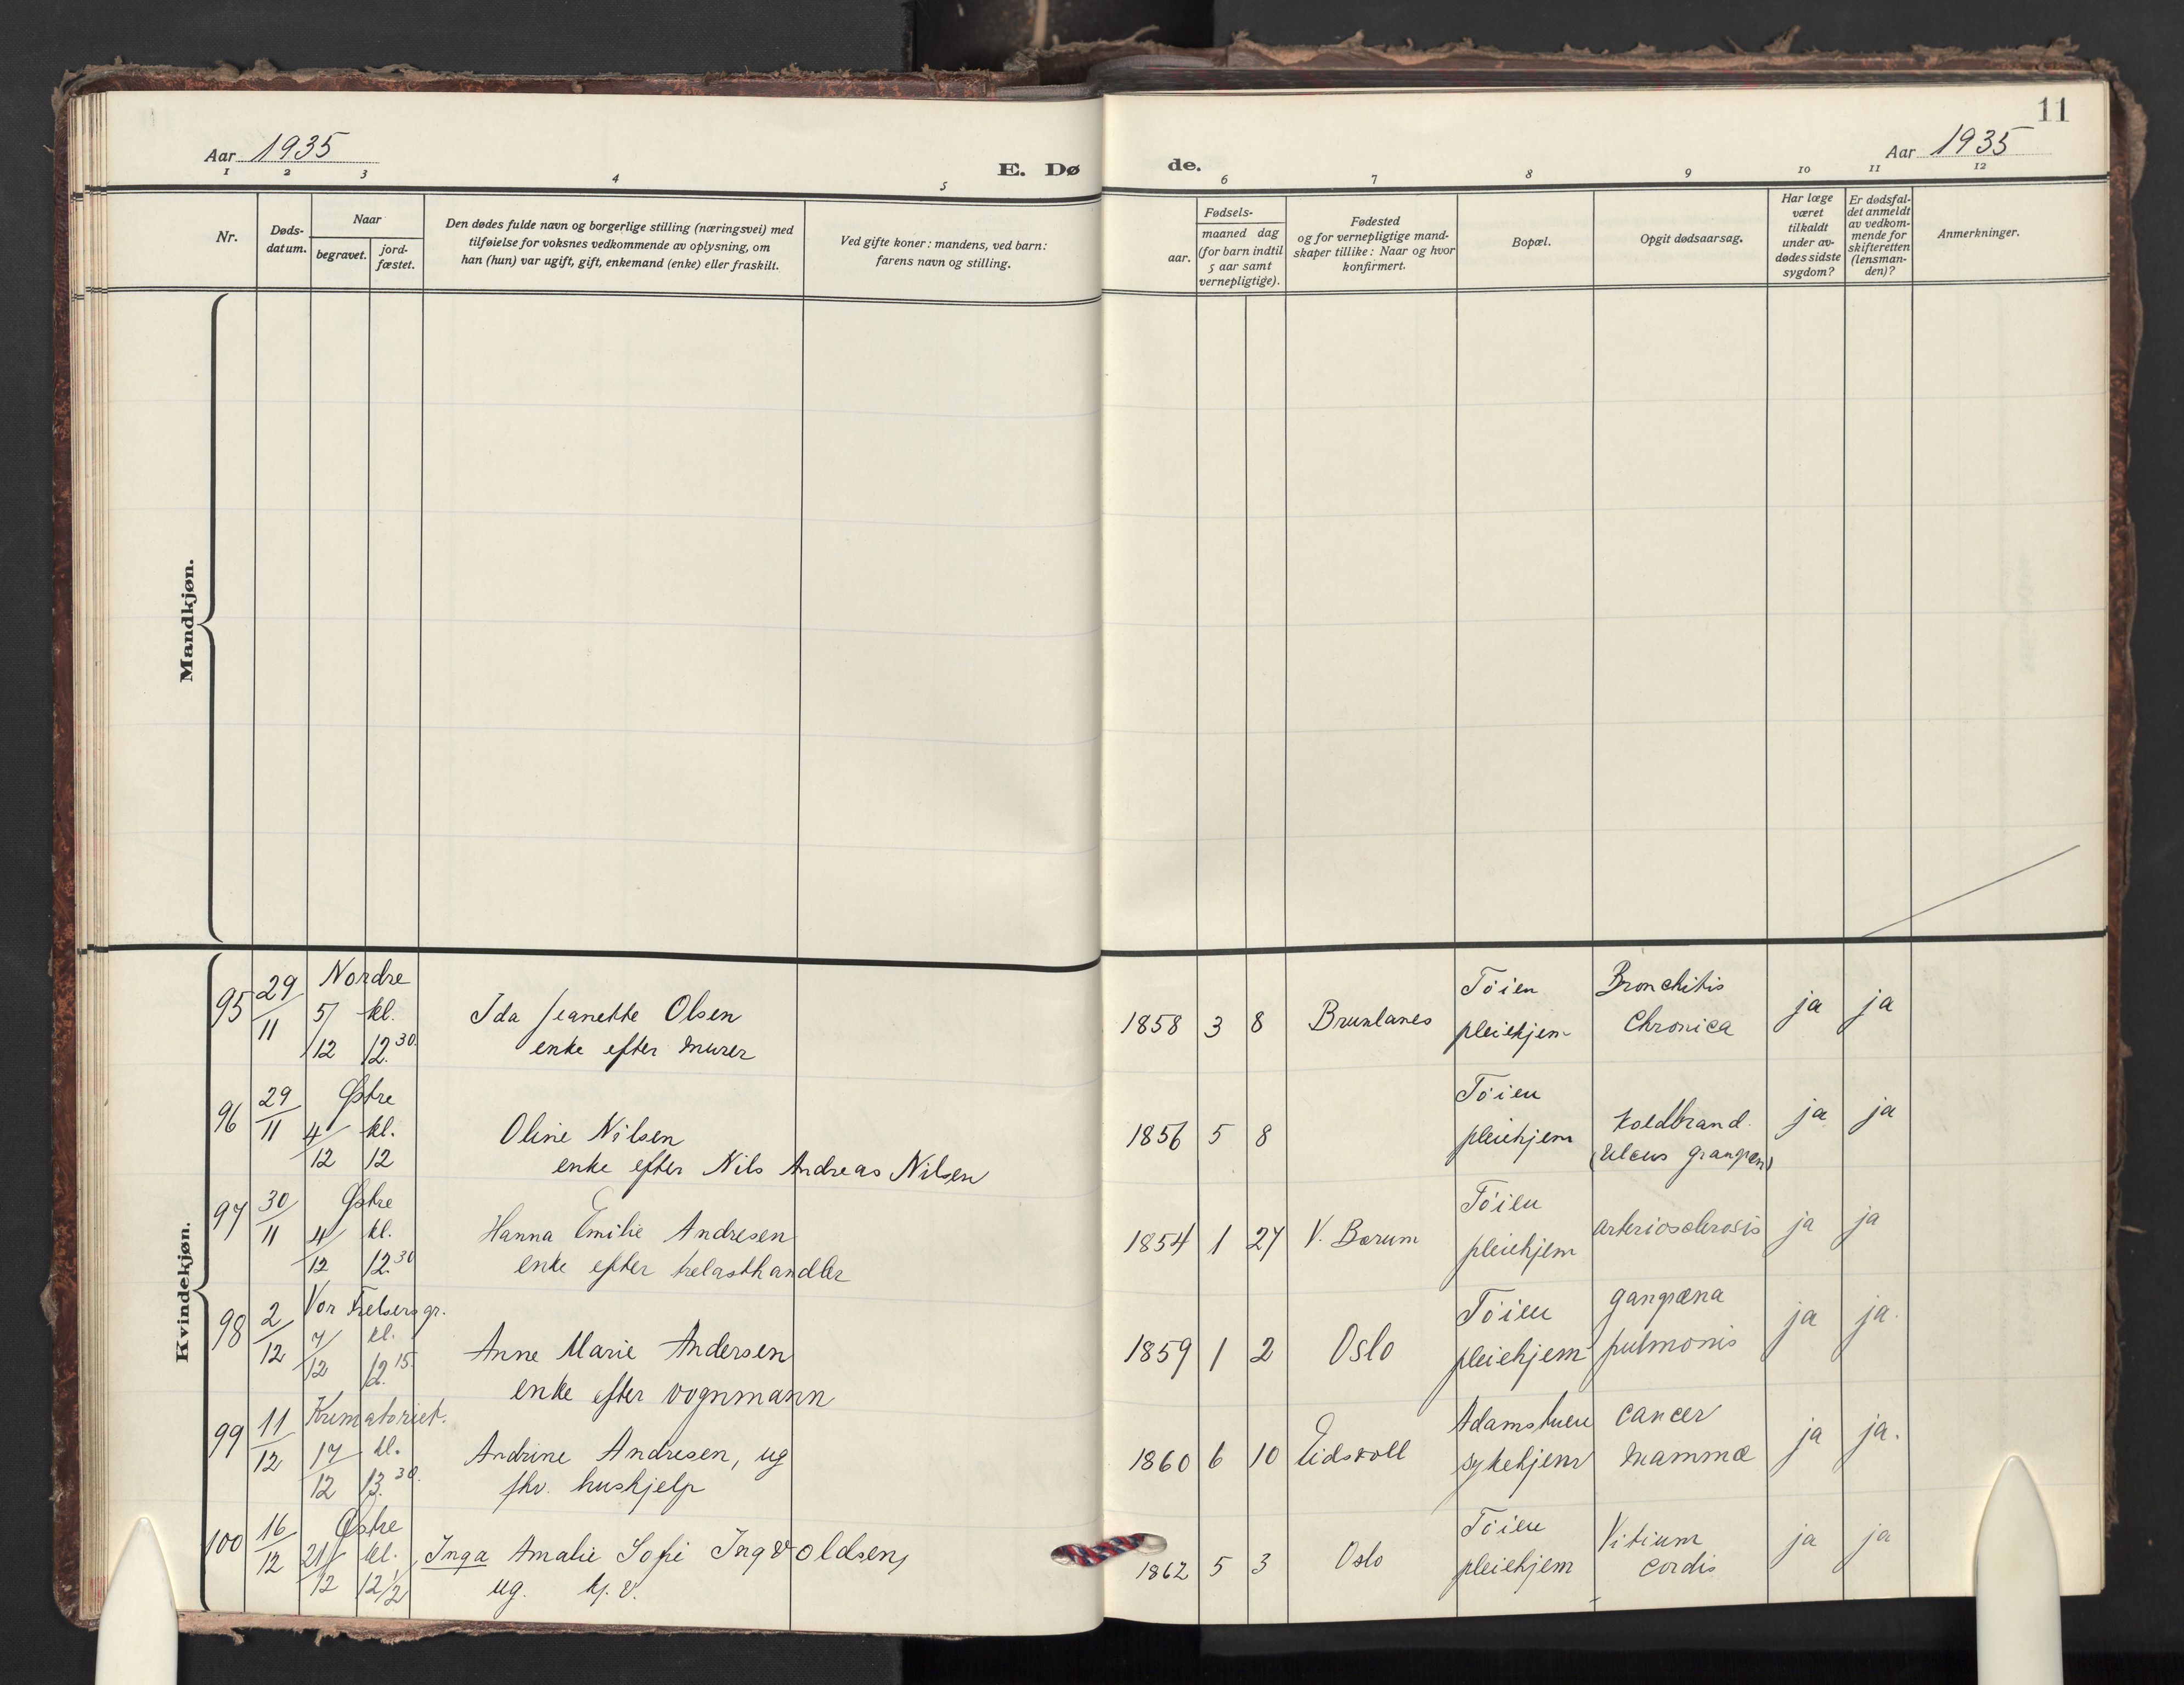 11
Aar 1935
E. Døde.
Aar 1935
1 2 3 4 5 6 7 8 9 10 11 12
Nr.
Døds-
datum.
Naar
begravet.
jord-
fæstet.
Den dødes fulde navn og borgerlige stilling (næringsvei) med
tilføielse for voksnes vedkommende av oplysning, om
han (hun) var ugift, gift, enkemand (enke) eller fraskilt.
Ved gifte koner: mandens, ved barn:
farens navn og stilling.
Fødsels-
aar.
maaned dag
(for barn indtil
5 aar samt
vernepligtige).
Fødested
og for vernepligtige mand-
skaper tillike: Naar og hvor
konfirmert.
Bopæl.
Opgit dødsaarsag.
Har læge
været
tilkaldt
under av-
dødes sidste
sygdom?
Er dødsfal-
det anmeldt
av vedkom-
mende for
skifteretten
(lensman-
den)?
Anmerkninger.
Mandkjøn.
Kvindekjøn.
95 29/11 Nordre 5/12 kl. 12.30
Ida Jeanette Olsen
enke efter murer
1858 3 8 Brunlanes
Töien
pleiehjem
Bronchitis
Chronica
ja ja
96 29/11 Østre 4/12 kl. 12
Oline Nilsen
enke efter Nils Andreas Nilsen
1856 5 8
Töien
pleiehjem
Koldbrand.
(Ulcus grangæn)
ja ja
97 30/11 Østre 4/12 kl. 12.30
Hanna Emilie Andresen
enke efter trelasthandler
1854 1 27 V. Bærum
Töien
pleiehjem
arteriosclerosis
ja ja
98 2/12 Vor Frelsers gr. 7/12 kl. 12.15
Anne Marie Andersen
enke efter vognmann
1859 1 2 Oslo
Töien
pleiehjem
gangræna
pulmonis
ja ja.
99 11/12 Krematoriet. 17/12 kl. 13.30
Andrine Andresen, ug
fhv. hushjelp
1860 6 10 Eidsvoll
Adamstuen
sykehjem
cancer
mammæ
ja ja.
100 16/12 Østre 21/12 kl. 12 1/2
Inga Amalie Sofie Ingvoldsen,
ug. hj. v.
1862 5 3 Oslo
Töien
pleiehjem
Vitium
cordis
ja ja